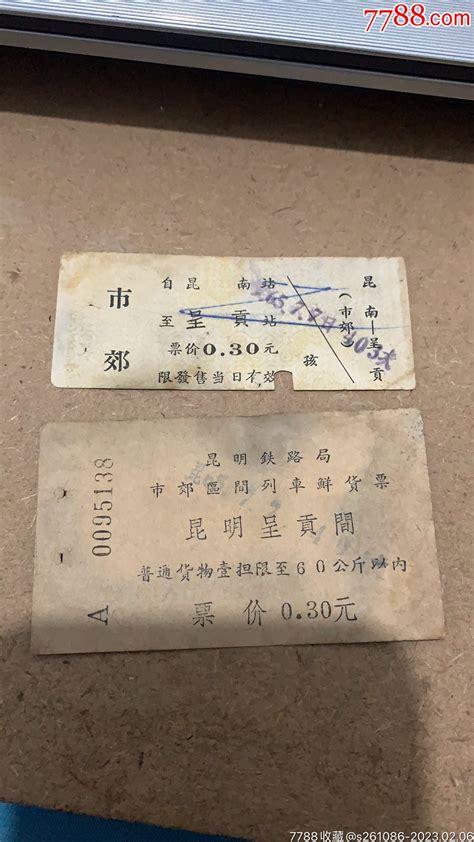 7788.com
市郊
自昆南站
至呈貢站
票价0.30元
限發售当日有效
孩
昆南—呈貢
(市郊)
65.7.7日
303次
A 0095138
昆明鉄路局
市郊區間列車鮮貨票
昆明呈貢間
普通貨物壹担限至60公斤以内
票价0.30元
7788收藏@s261086-2023.02.06